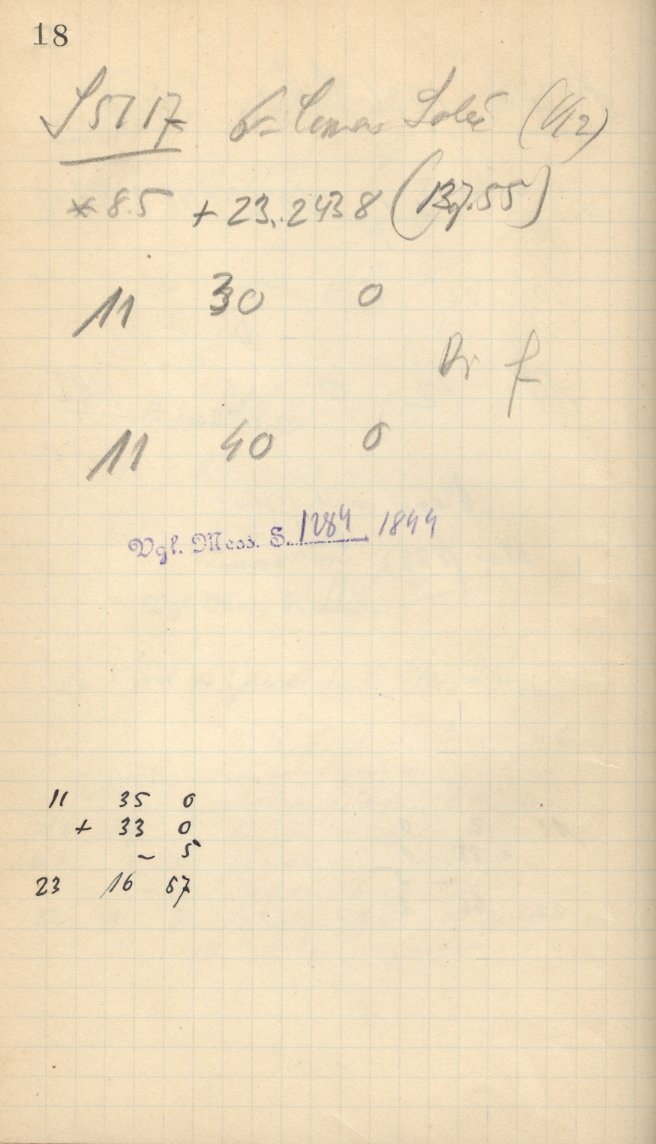 18
S 5117
* 8.5 + 23.2438 (137.55)
11 30 0
11 40 0
Vgl. Mess. S. 1284 1844
11 35 0
+ 33 0
– 5
23 16 57